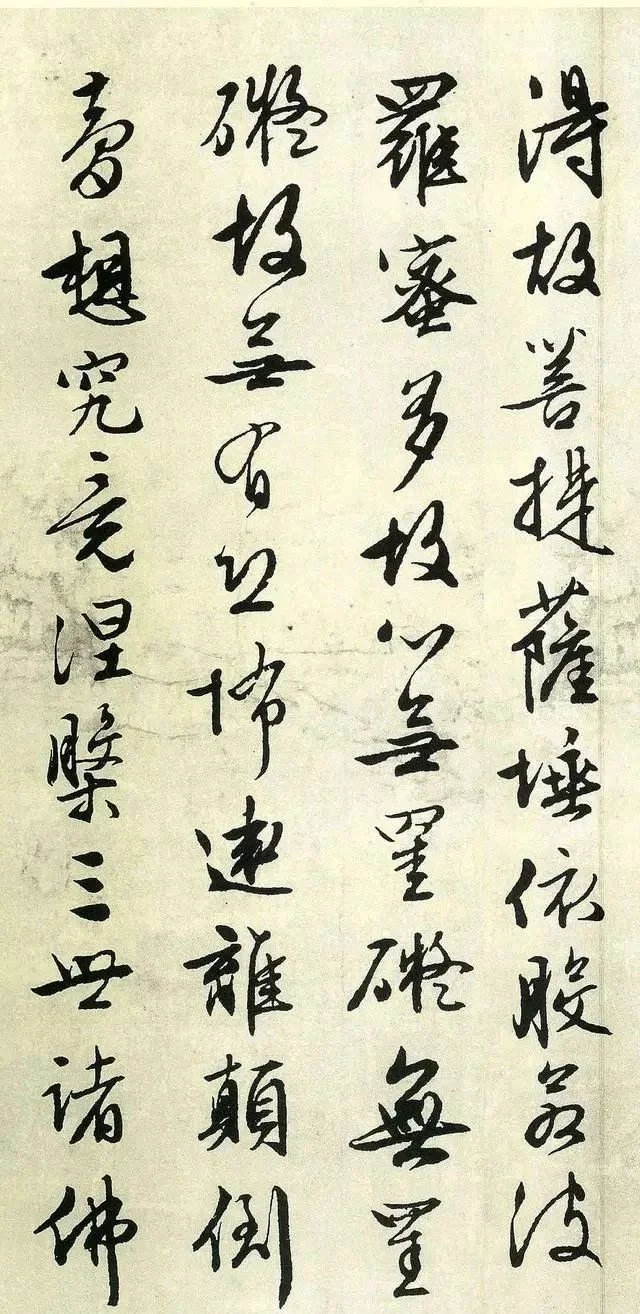 得故菩提薩埵依般若波
羅蜜多故心無罣礙無罣
礙故無有恐怖遠離顛倒
夢想究竟涅槃三世諸佛